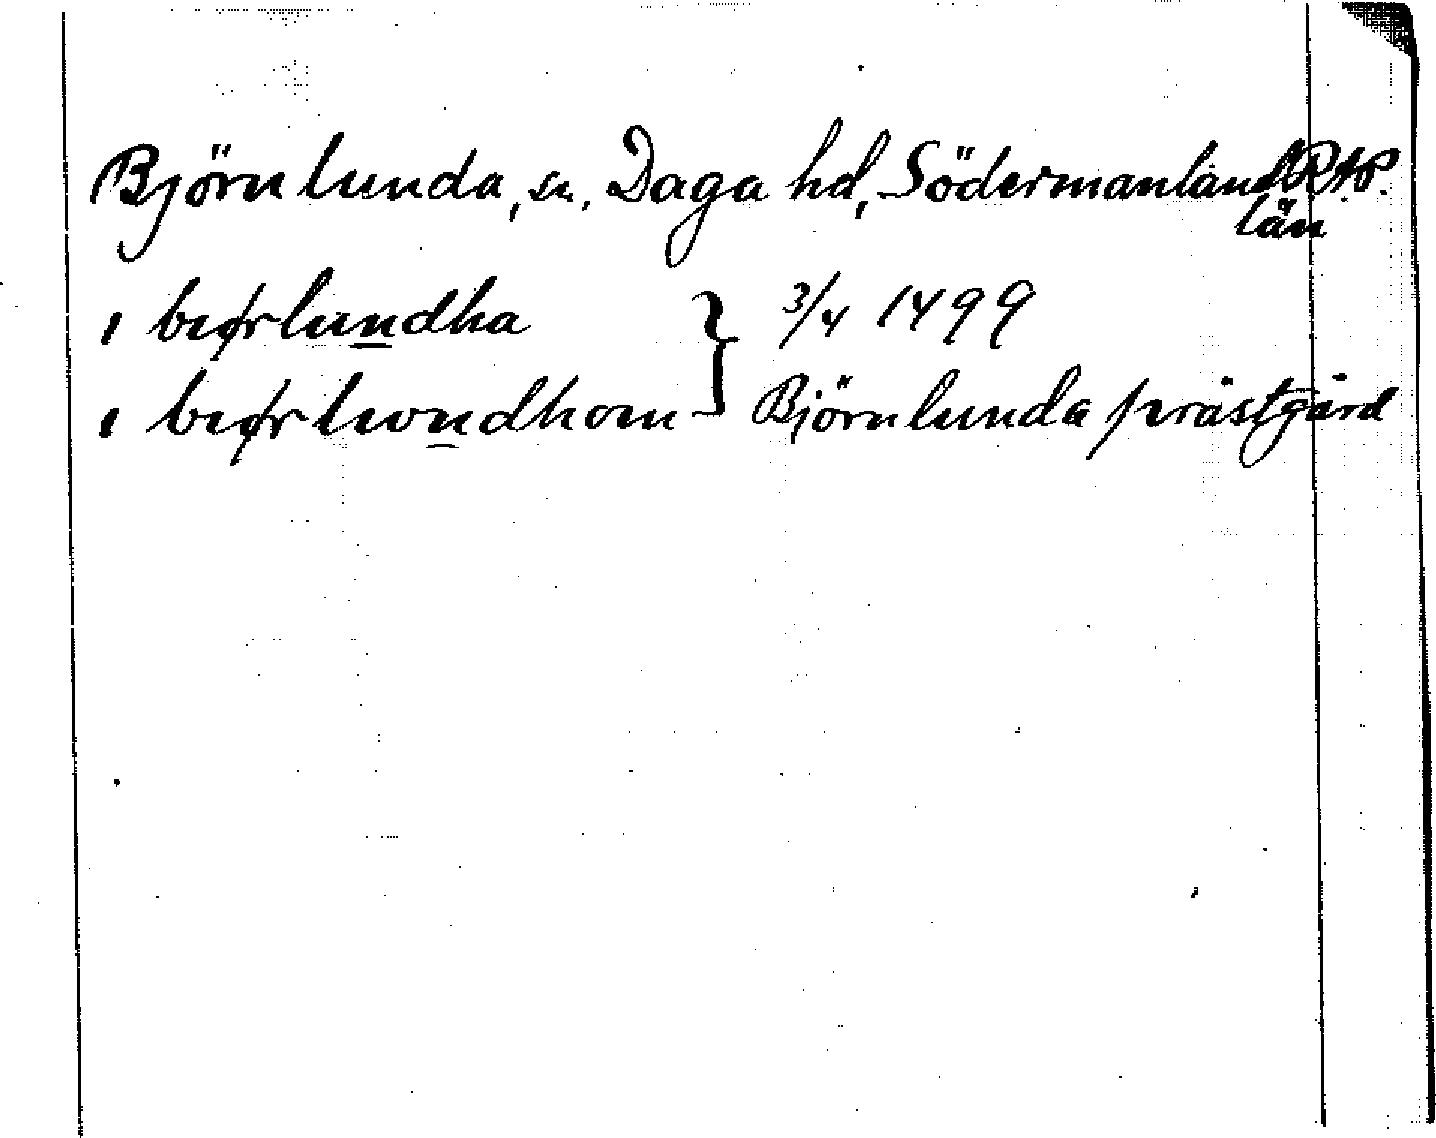 Björnlunda, sn, Daga hd, Södermanlands RAP.
län
ı bıørlundha } 3/4 1499
ı bıørlwndhom } Björnlunda prästgård